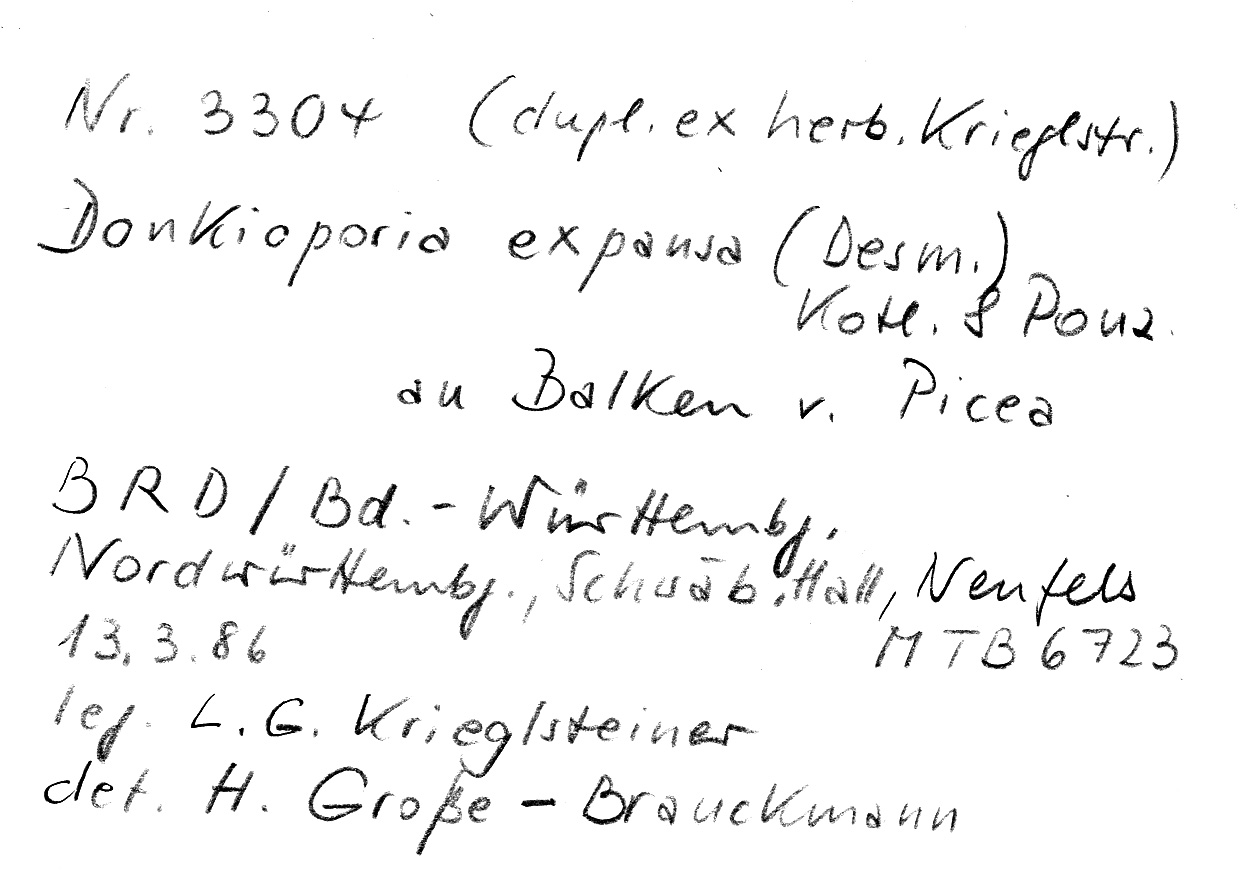 Nr. 3304 (dupl. ex herb. Krieglstr.)
Donkioporia expansa (Desm.)
Kotl. & Pouz.
an Balken v. Picea
BRD / Bd.-Württembg.
Nordwürttembg., Schwäb. Hall, Neufels
13.3.86 MTB 6723
leg. L.G. Krieglsteiner
det. H. Große-Brauckmann